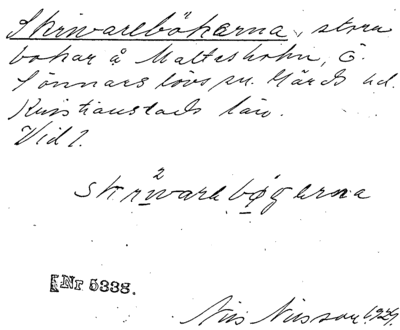 Skrivarebökerna, stora
bokar å Maltesholm, Ö.
Sönnarslövs sn. Gärds hd.
Kristianstads län.
Vid 1.
skrivarebøgerna
2
[Nr 5335.
Nils Nilsson. 1929.